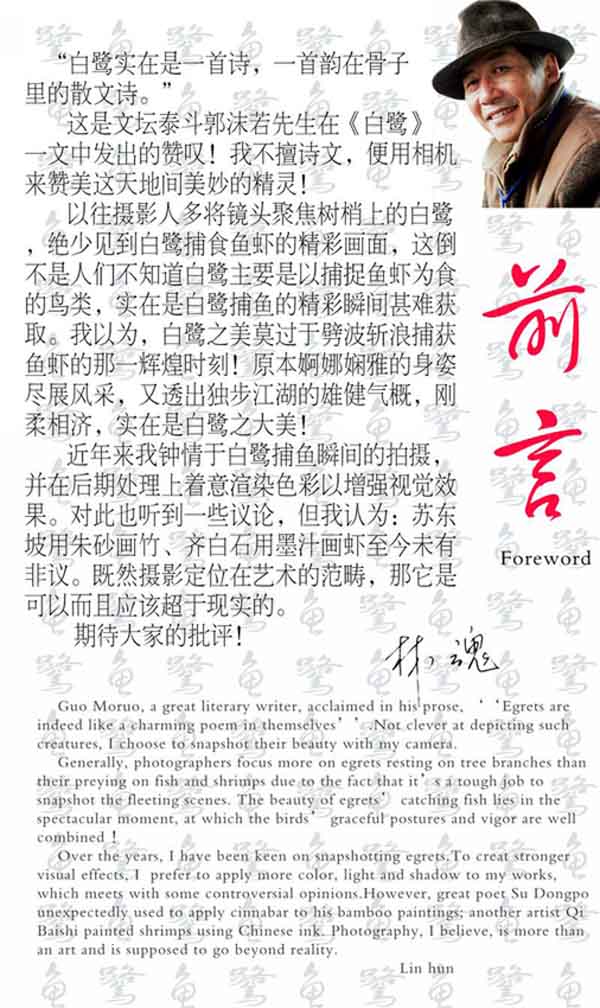 “白鹭实在是一首诗，一首韵在骨子
里的散文诗。”
这是文坛泰斗郭沫若先生在《白鹭》
一文中发出的赞叹！我不擅诗文，便用相机
来赞美这天地间美妙的精灵！
以往摄影人多将镜头聚焦树梢上的白鹭
，绝少见到白鹭捕食鱼虾的精彩画面，这倒
不是人们不知道白鹭主要是以捕捉鱼虾为食
的鸟类，实在是白鹭捕鱼的精彩瞬间甚难获
取。我以为，白鹭之美莫过于劈波斩浪捕获
鱼虾的那一辉煌时刻！原本婀娜娴雅的身姿
尽展风采，又透出独步江湖的雄健气概，刚
柔相济，实在是白鹭之大美！
近年来我钟情于白鹭捕鱼瞬间的拍摄，
并在后期处理上着意渲染色彩以增强视觉效
果。对此也听到一些议论，但我认为：苏东
坡用朱砂画竹、齐白石用墨汁画虾至今未有
非议。既然摄影定位在艺术的范畴，那它是
可以而且应该超于现实的。
期待大家的批评！
林魂
前言
Foreword
Guo Moruo, a great literary writer, acclaimed in his prose, ‘‘Egrets are
indeed like a charming poem in themselves’’.Not clever at depicting such
creatures, I choose to snapshot their beauty with my camera.
Generally, photographers focus more on egrets resting on tree branches than
their preying on fish and shrimps due to the fact that it’s a tough job to
snapshot the fleeting scenes. The beauty of egrets’ catching fish lies in the
spectacular moment, at which the birds’ graceful postures and vigor are well
combined！
Over the years, I have been keen on snapshotting egrets.To creat stronger
visual effects, I prefer to apply more color, light and shadow to my works,
which meets with some controversial opinions.However, great poet Su Dongpo
unexpectedly used to apply cinnabar to his bamboo paintings; another artist Qi
Baishi painted shrimps using Chinese ink. Photography, I believe, is more than
an art and is supposed to go beyond reality.
Lin hun